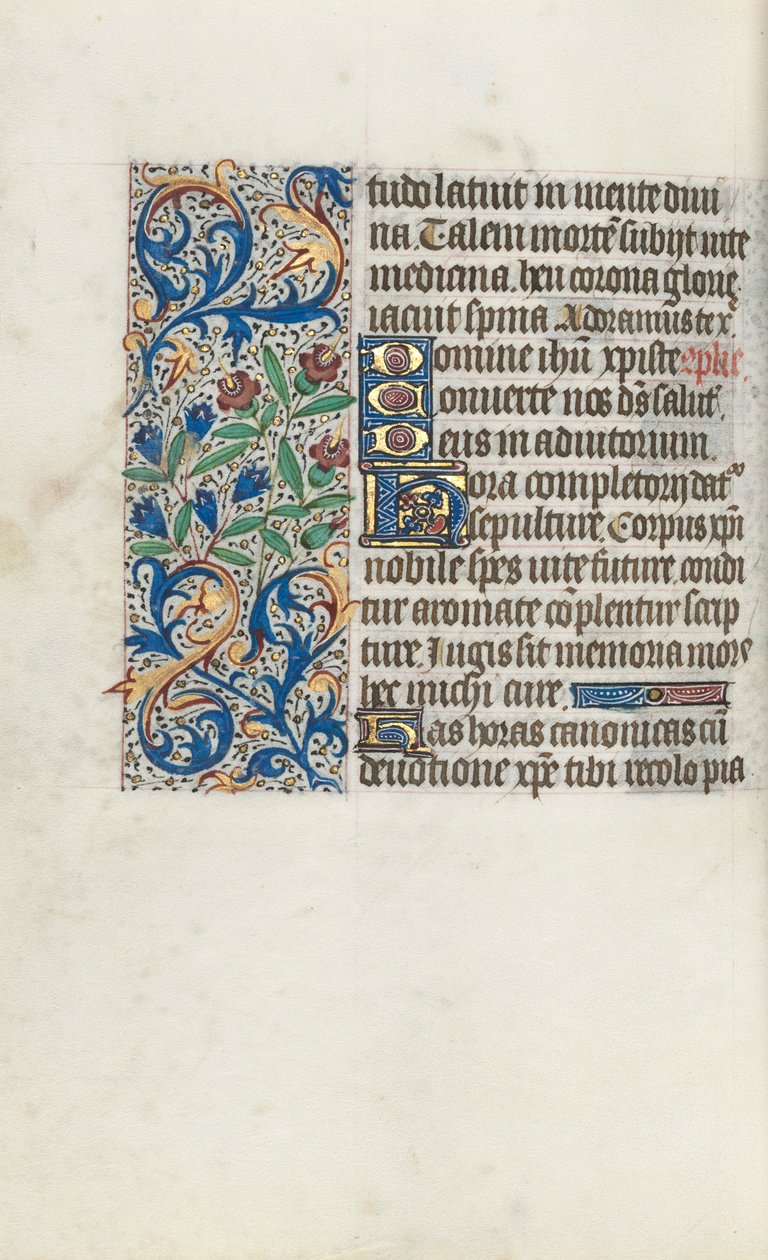 tudo latuit in mente diui
na. Talem mortē subiit uite
medicina. heu corona glorię
iacuit spina Adoramus te x̄.
Domine ihū xp̄iste. cplie.
Conuerte nos ds̄ salut̄.
Deus in adiutorium.
Hora completorij dat²
sepulture. Corpus xp̄i
nobile spes uite future. condi
tur aromate cōplentur scrip
ture. Jugis sit memoria more
hec michi cure.
Has horas canonicas cū
deuotione xp̄e tibi recolo pia